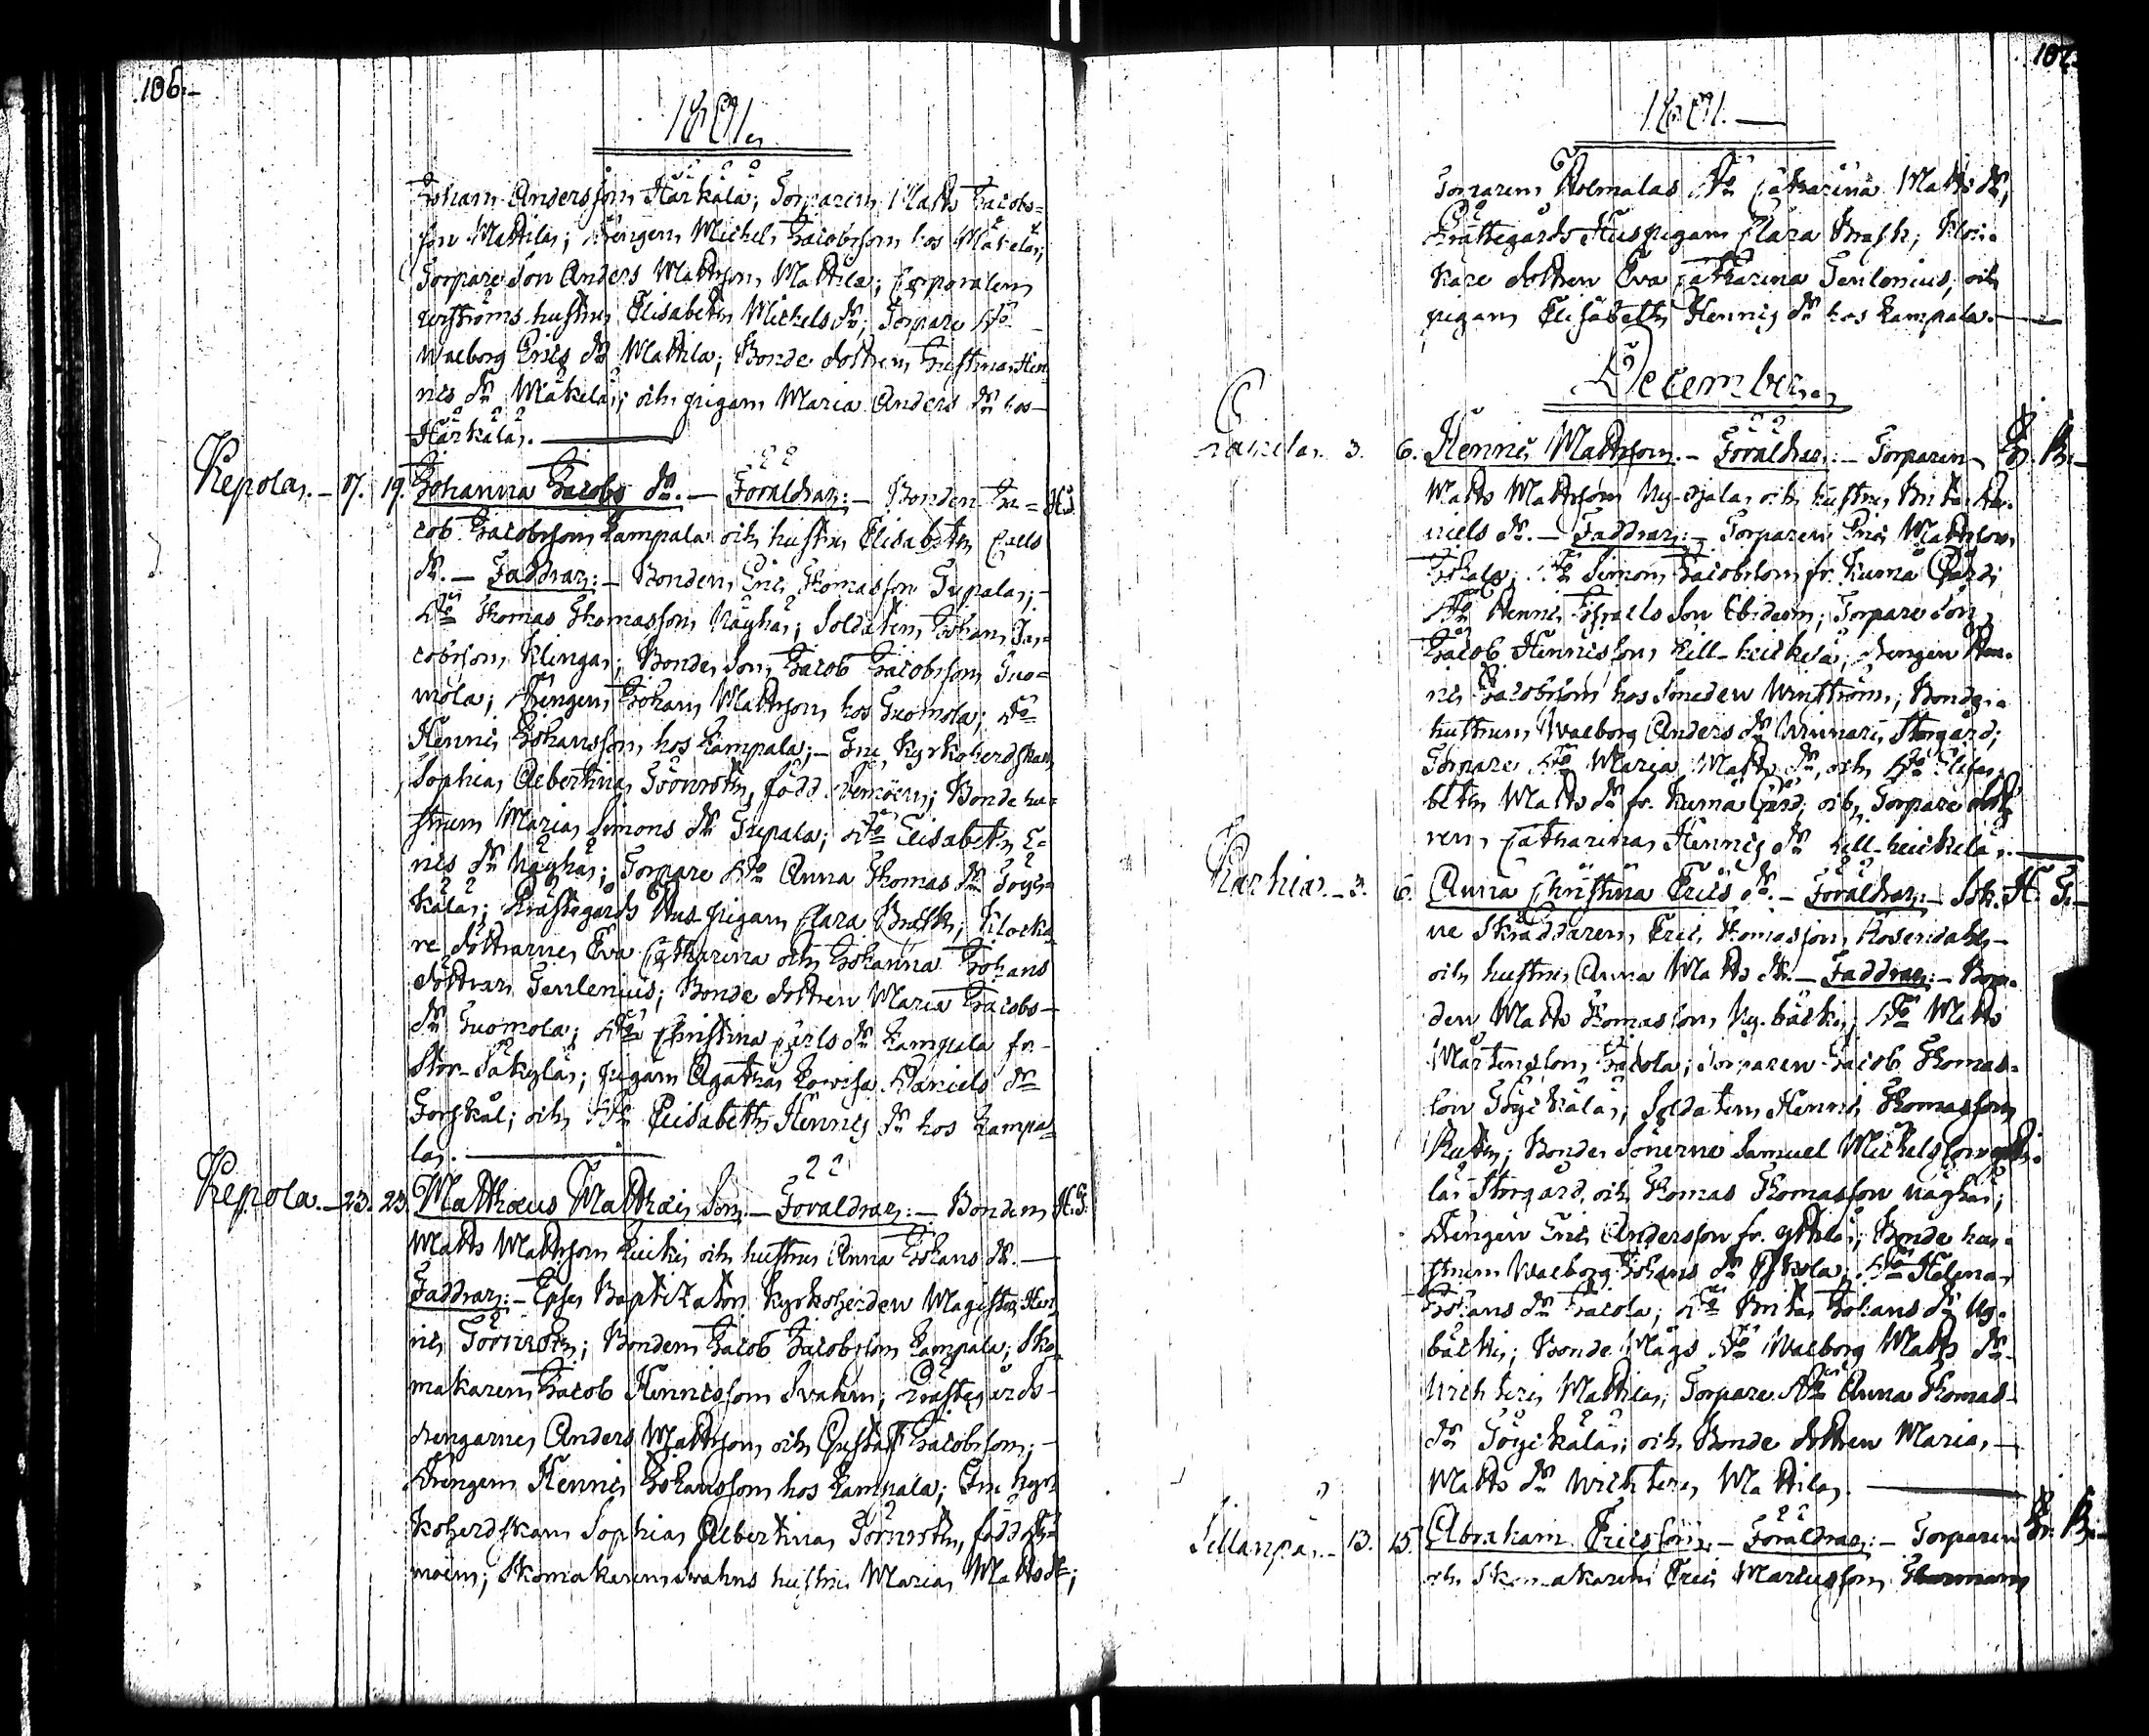 106.
1801.
Johan Andersson Härkälä; Torparen Matts Jacobs-
son Mattila; Drengen Michel Jacobsson hos Mäkelä;
Torpare Son Anders Mattsson Mattila; Corporalen
hustru Elisabeth Michels dr; Torpare Dito
Walborg Erics dr Mattila; Bonde dottren Justina Hen-
rics dr Mäkelä; och pigan Maria Anders dr hos
Härkälä.
Kepola. 17. 19. Johanna Jacobs dr. – Föräldrar: – Bonden Ja- H. T.
cob Jacobsson Lampala och hustru Elisabeth Calls
dr. – Faddrar: – Bonden Eric Thomasson Tupala;
Dito Thomas Thomasson Näyhä; Soldaten Johan Ja-
cobsson Klinga; Bonde Son Jacob Jacobsson Tuo-
mola; Drengen Johan Mattsson hos Tuomola; Dito
Henric Johansson hos Lampala; – Fru Kyrkoherdskan
Sophia Albertina Törnroth, född Memoën; Bonde hu-
strun Maria Simons dr Tupala; Dito Elisabeth E-
rics dr Näyhä; Torpare Dito Anna Thomas dr Töyr-
kälä; Prästegårds Hus pigan Clara Brask; Klocka-
re döttrarne Eva Catharina och Johanna Johans
döttrar Tenlenius; Bonde dottren Maria Jacobs
dr Tuomola; Dito Christina Carls dr Lampala fr.
Stor-Säkylä; pigan Agatha Lovisa Daniels dr
Forskål; och Dito Elisabeth Henrics dr hos Lampa-
la.
Kepola. 23. 23. Matthæus Matthæi Son. – Föräldrar: – Bonden H. T.
Matts Mattsson Leicki och hustru Anna Johans dr. –
Faddrar: – Ipse Baptizator Kyrkoherden Magister Hen-
ric Törnroth; Bonden Jacob Jacobsson Lampala; Sko-
makaren Jacob Henricsson Svahn; Prästegårds-
drengarne Anders Mattsson och Gustaf Jacobsson;
Drengen Henric Johansson hos Lampala; Fru Kyr-
koherdskan Sophia Albertina Törnroth, född Me-
moën; Skomakaren Svahns hustru Maria Matts dr;
107.
1801.
Torparen Holmalas Dito Catharina Matts dr,
Prästegårds Huspigan Clara Brask; Kloc-
kare dottren Eva Catharina Tenlenius, och
pigan Elisabeth Henrics dr hos Lampala.
December.
3. 6. Henric Mattsson. – Föräldrar: – Torparen Er. B.
Matts Mattsson Ny-Ojala och hustru Brita Da-
niels dr. – Faddrar: – Torparen Eric Mattsson
Dito Simon Jacobsson fr. Kuma Gård;
Dito Henric Israels Son Ebideem; Torpare Son
Jacob Henricsson Lill-heickelä; Drengen Hen-
ric Jacobsson hos Smeden Winström; Bonde
hustrun Walborg Anders dr Winnari, Storgård;
Torpare Dito Maria Matts dr, och Dito Elisa-
beth Matts dr fr. Kuma Gård; och Torpare dott-
ren Catharina Henrics dr Lill-heickelä.
Karhia. 3. 6. Anna Christina Erics dr. – Föräldrar: – Sok- H. T.
ne Skräddaren Eric Thomasson Rosendahl
och hustru Anna Matts dr. – Faddrar: – Bon-
den Matts Thomasson Ny-bäcki; Dito Matts
Mårtensson Jaakola; Torparen Jacob Thomas-
son Töyrkälä; Soldaten Henric Thomasson
Ruth; Bonde Sönerne Samuel Michelsson
lä Storgård, och Thomas Thomasson Näyhä;
Drengen Eric Andersson fr. Bonde hu-
strun Walborg Johans dr Eskola; Dito Helena
Johans dr Jaakola; Dito Brita Johans dr Ny-
bäcki; Bonde Mågs Dito Walborg Matts dr
Wichteri Mattila; Torpare Dito Anna Thomas
dr Töyrkälä; och Bonde dottren Maria
Matts dr Wichteri Mattila.
Sillanpä. 13. 15. Abraham Ericsson. – Föräldrar: – Torparen Er. B.
och Skomakaren Eric Mariusson